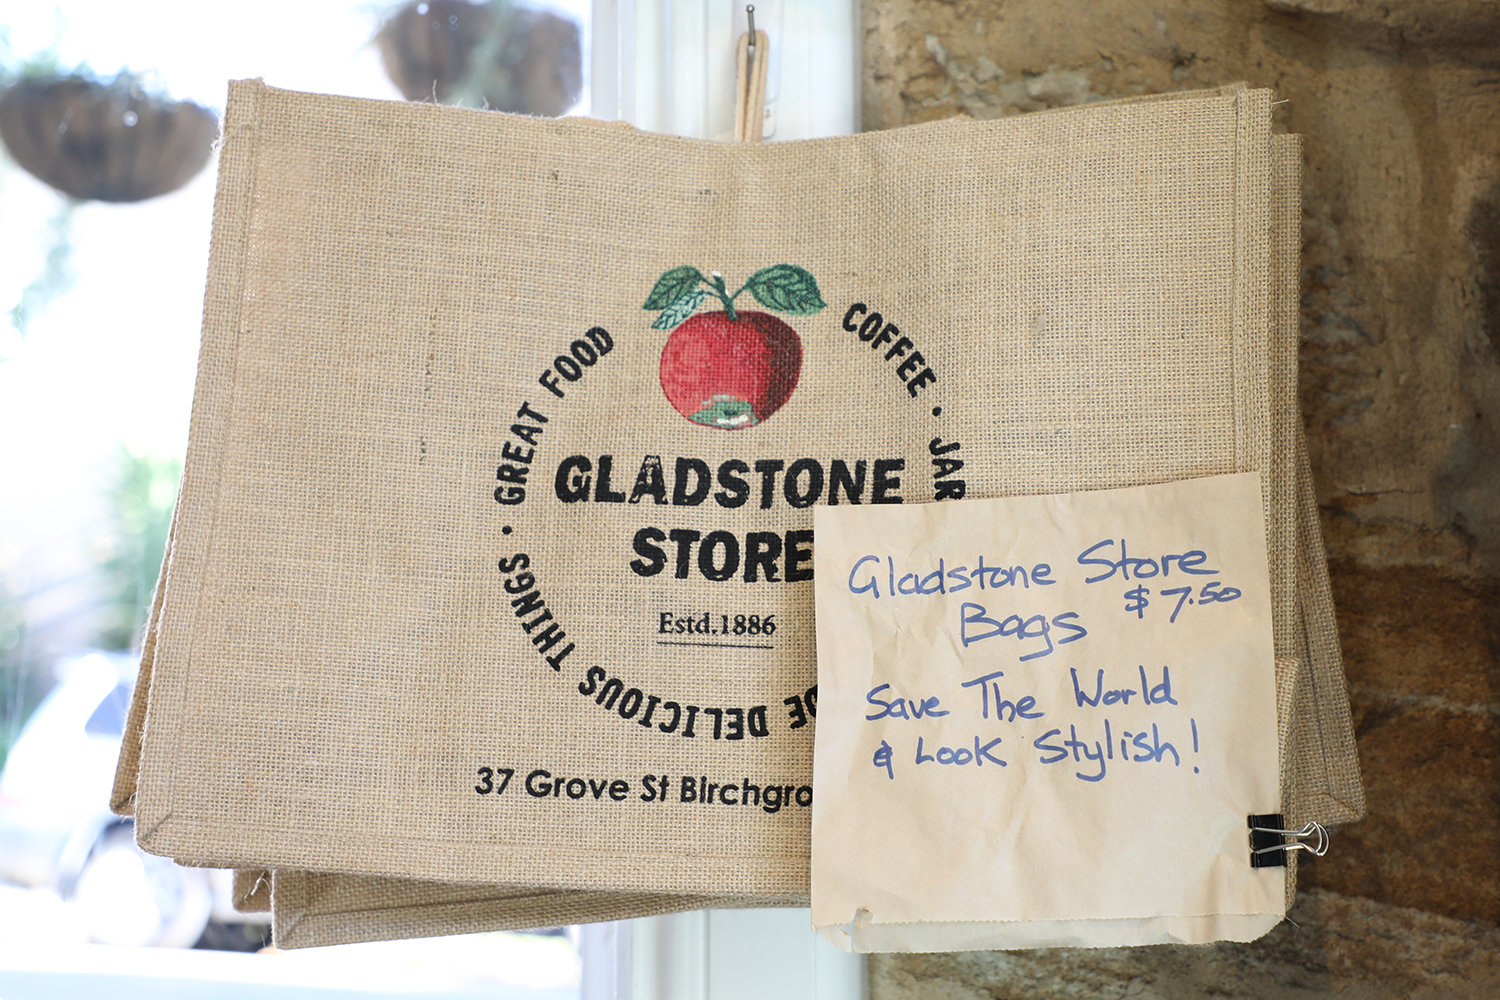 GREAT FOOD
COFFEE · JAR
GLADSTONE
STORE
Estd.1886
DELICIOUS THINGS ·
37 Grove St Birchgro
Gladstone Store
Bags $7.50
Save The World
& Look Stylish!